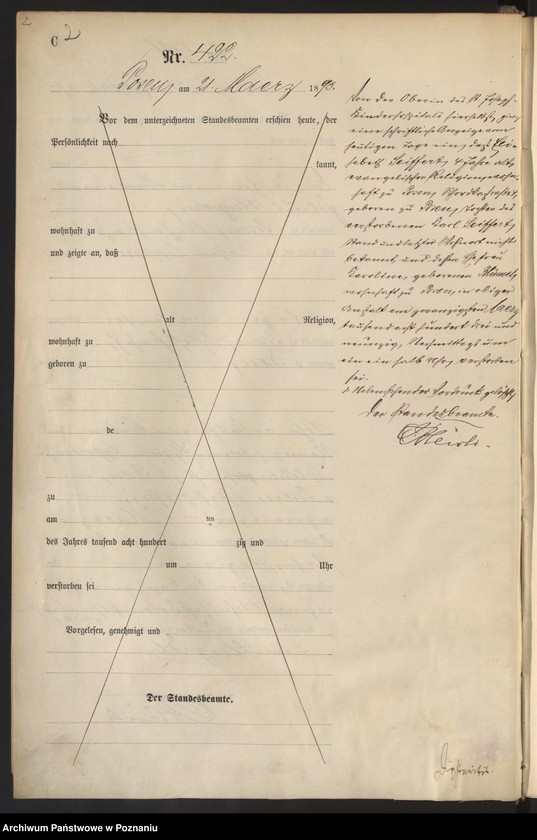 2
C 2
Nr. 422.
Posen, am 21. Maerz 1893.
Vor dem unterzeichneten Standesbeamten erschien heute, der
Persönlichkeit nach
kannt,
wohnhaft zu
und zeigte an, daß
alt Religion,
wohnhaft zu
geboren zu
de
zu
am ten
des Jahres tausend acht hundert zig und
um Uhr
verstorben sei
Vorgelesen, genehmigt und
Der Standesbeamte.
Von der Oberin des St. Joseph-
Kinderspitals hierselbst, ging
eine schriftliche Anzeige vom
heutigen Tage ein, daß Eli-
sabeth Seiffert, 4 Jahre alt,
evangelischer Religion, wohn-
haft zu Posen,
geboren zu Posen, Tochter des
verstorbenen Karl Seiffert,
Stand und letzter Wohnort nicht
bekannt, und dessen Ehefrau
Karoline, geborenen
wohnhaft zu Posen, in obiger
Anstalt am zwanzigsten Maerz
tausend acht hundert drei und
neunzig, Nachmittags um
ein ein halb Uhr, verstorben
sei.
Nebenstehender Vordruck gelöscht.
Der Standesbeamte.
Archiwum Państwowe w Poznaniu